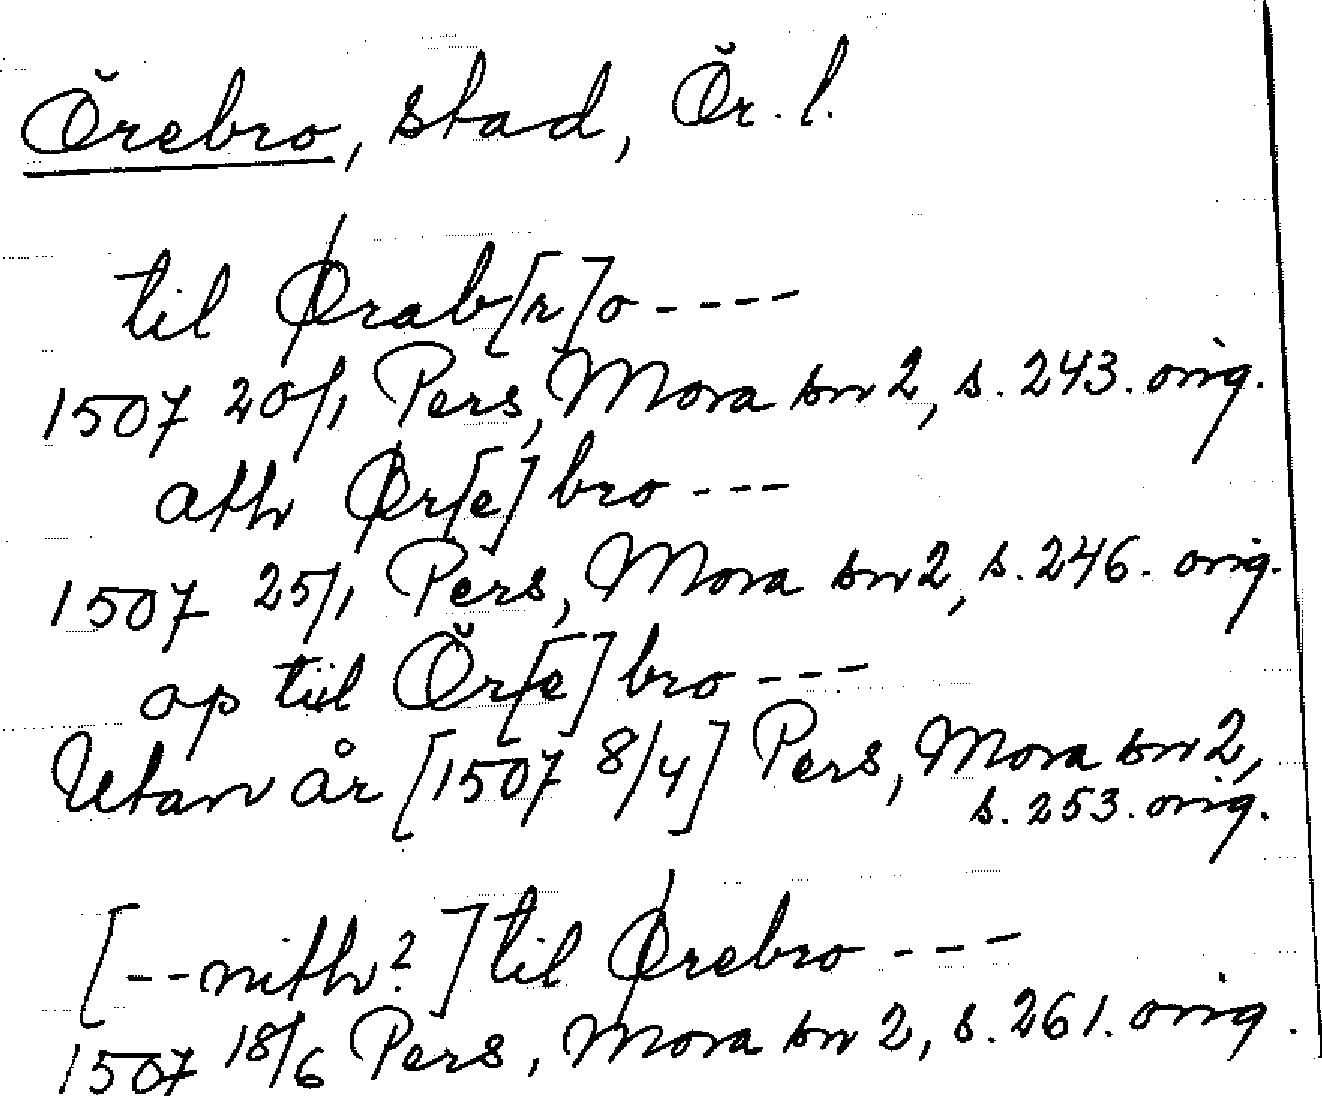 Örebro, stad, Ör. l.
til Ørab[r]o ----
1507 20/1 Pers, Mora bn 2, s. 243. orig.
ath Ør[e]bro ---
1507 25/1 Pers, Mora bn 2, s. 246. orig.
op tiil Ör[e]bro ---
Utan år [1507 8/4] Pers, Mora bn 2,
s. 253. orig.
[--mith?] til Ørebro ---
1507 18/6 Pers, Mora bn 2, s. 261. orig.